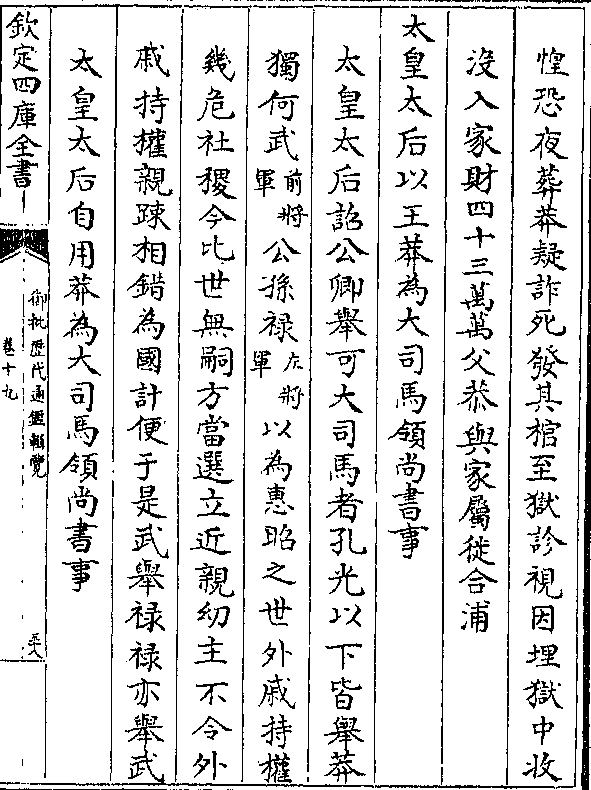 惶恐夜葬莽疑詐死發其棺至獄診視因埋獄中收
沒入家財四十三萬萬父恭與家屬徙合浦
太皇太后以王莽為大司馬領尚書事
太皇太后詔公卿舉可大司馬者孔光以下皆舉莽
獨何武前將軍公孫禄左將軍以為惠昭之世外戚持權
幾危社稷今比世無嗣方當選立近親幼主不令外
戚持權親踈相錯為國計便于是武舉禄禄亦舉武
太皇太后自用莽為大司馬領尚書事
欽定四庫全書
御批歷代通鑑輯覽
卷十九
五八